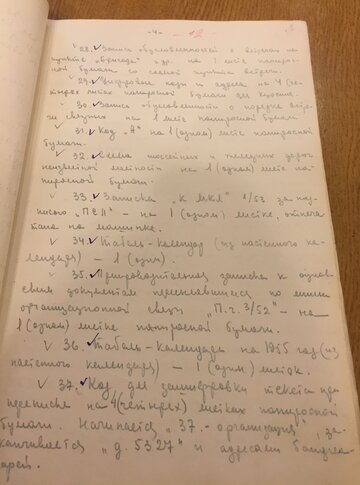 -4-
28. Запись обусловленностей о встречах на
пункте "Бригада" и др. на 1 листе папирос-
ной бумаги со схемой пункта встреч.
29. Цифровые коды и адреса на 4 (че-
тырех) листах папиросной бумаги для
30. Запись обусловленности о порядке встре-
чи связных на 1 листе папиросной бумаги
31. Код "А" на 1 (одном) листе папиросной
бумаги.
32. Схема шоссейных и железных дорог
неизвестной местности на 1 (одном) листе па-
пиросной бумаги.
33. Записка "К МКЛ" 4/53 за под-
писью "ПСП" – на 1 (одном) листке, отпеча-
тана на машинке.
34. Табель-календар (из настенного ка-
лендаря) – 1 (один).
35. Препроводительная записка к
документам пересылавшимся по линии
организационной связи "П.ч. 3/52" – на
1 (одном) листке папиросной бумаги.
36. Табель-календарь на 1955 год (из
настенного календаря) – 1 (один) листок.
37. Код для зашифровки текста при
переписке на 4 (четырех) листках папиросной
бумаги. Начинается "37.- организация", за-
канчивается "д. 5327" и адресами